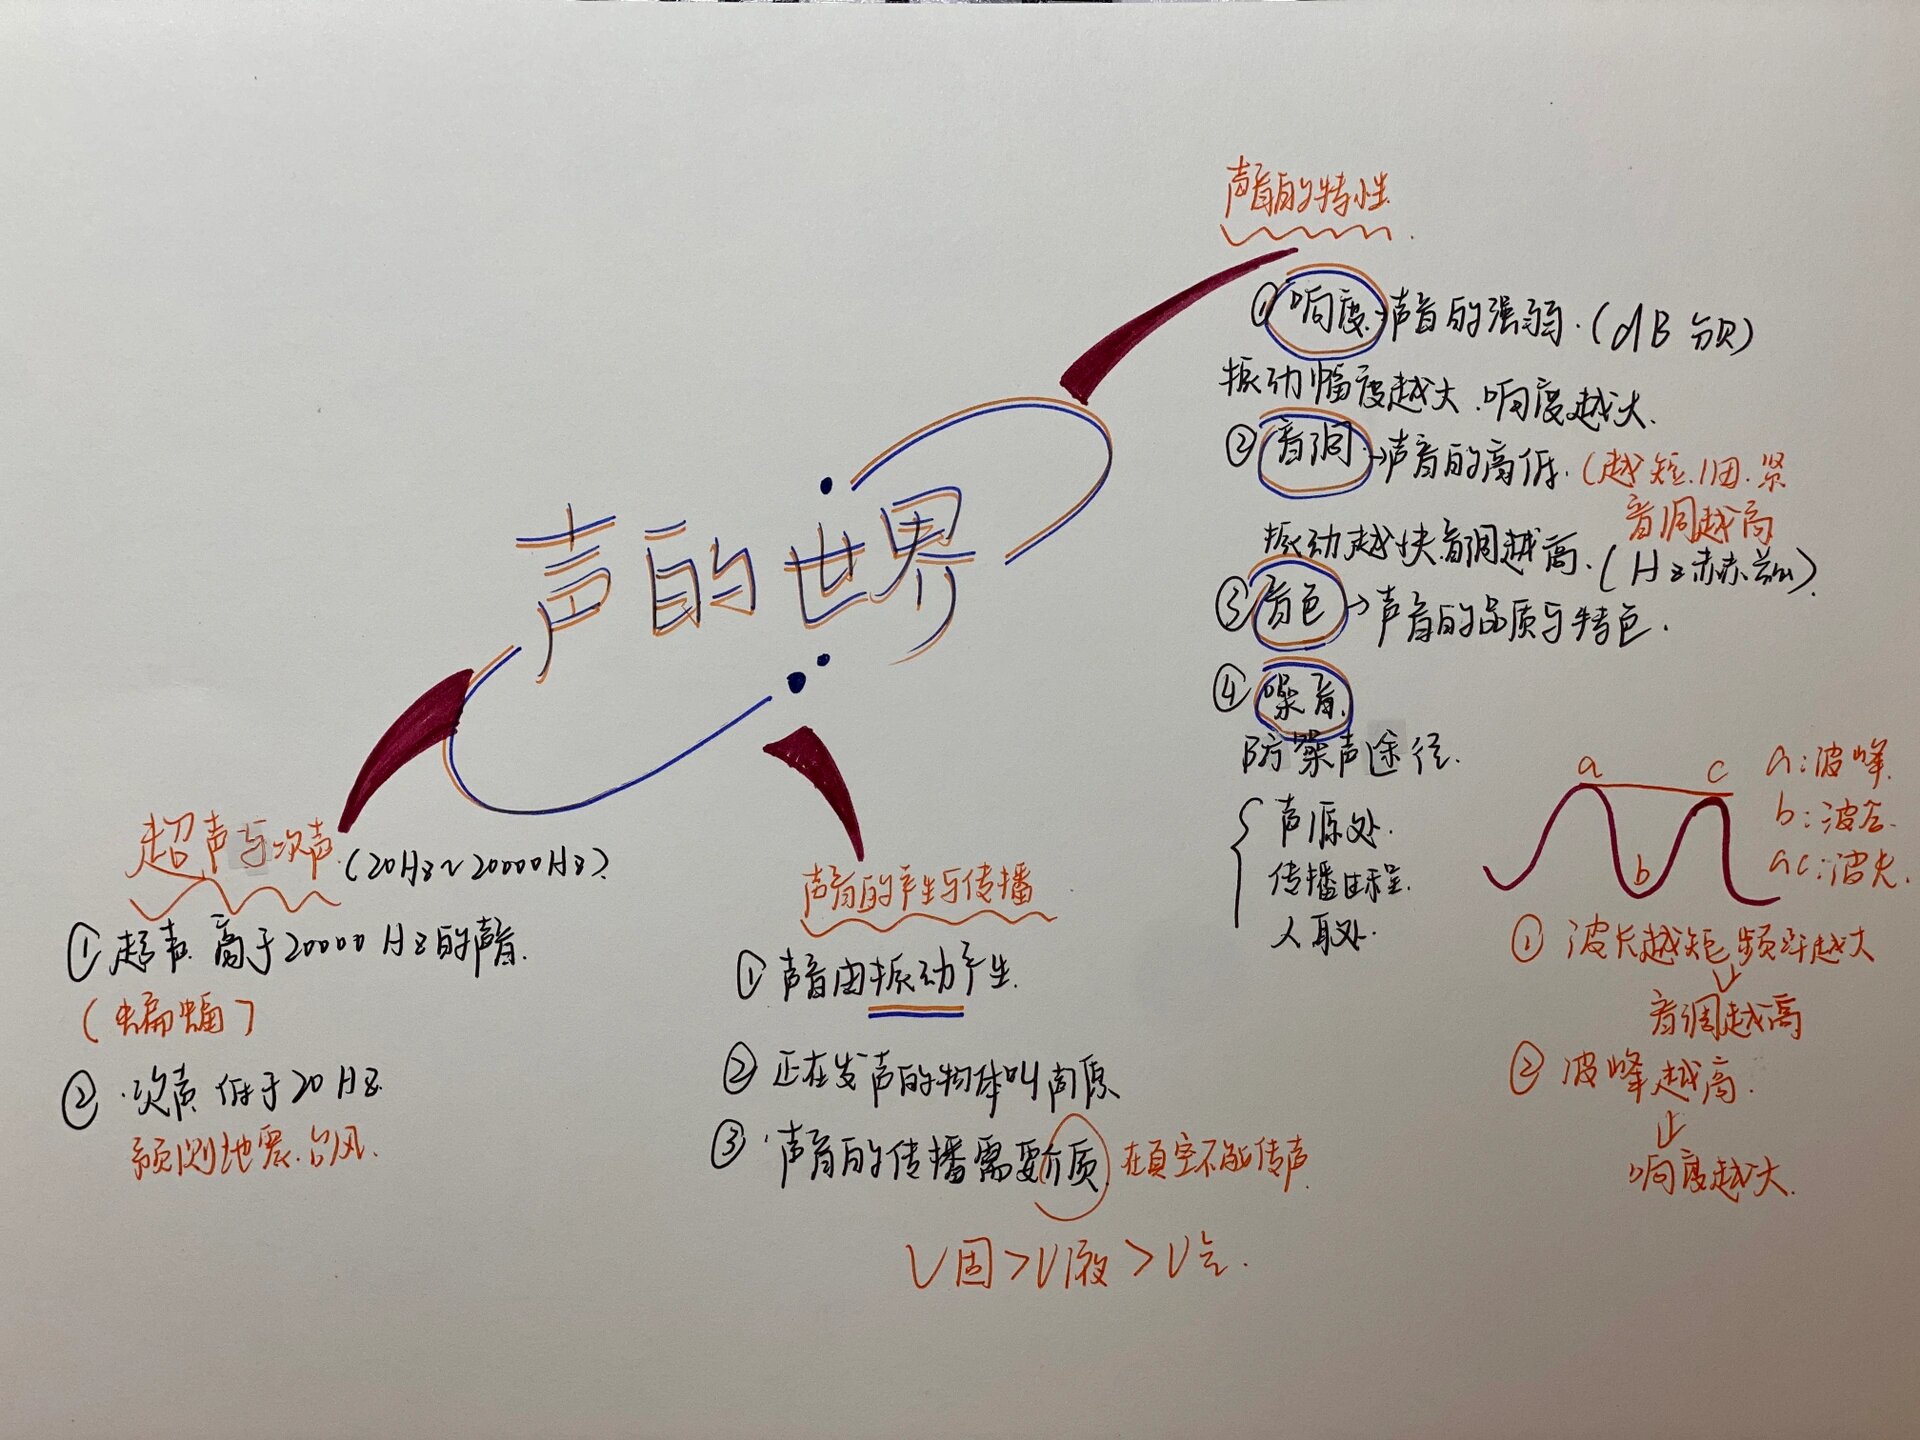 声的世界
声音的特性
① 响度→声音的强弱.(dB 分贝)
振动幅度越大.响度越大.
② 音调→声音的高低.(越短.细.紧
音调越高
振动越快音调越高.(Hz赫兹).
③ 音色→声音的品质与特色.
④ 噪音.
防噪声途径.
声源处.
传播过程.
人耳处.
a c
b
a:波峰.
b:波谷.
ac:波长.
① 波长越短频率越大
音调越高
② 波峰越高.
响度越大.
声音的产生与传播
① 声音由振动产生.
② 正在发声的物体叫声源
③ 声音的传播需要介质 在真空不能传声.
V固>V液>V气.
超声与次声.(20Hz~20000Hz).
① 超声 高于20000Hz的声音.
(蝙蝠)
② 次声 低于20Hz
预测地震.台风.